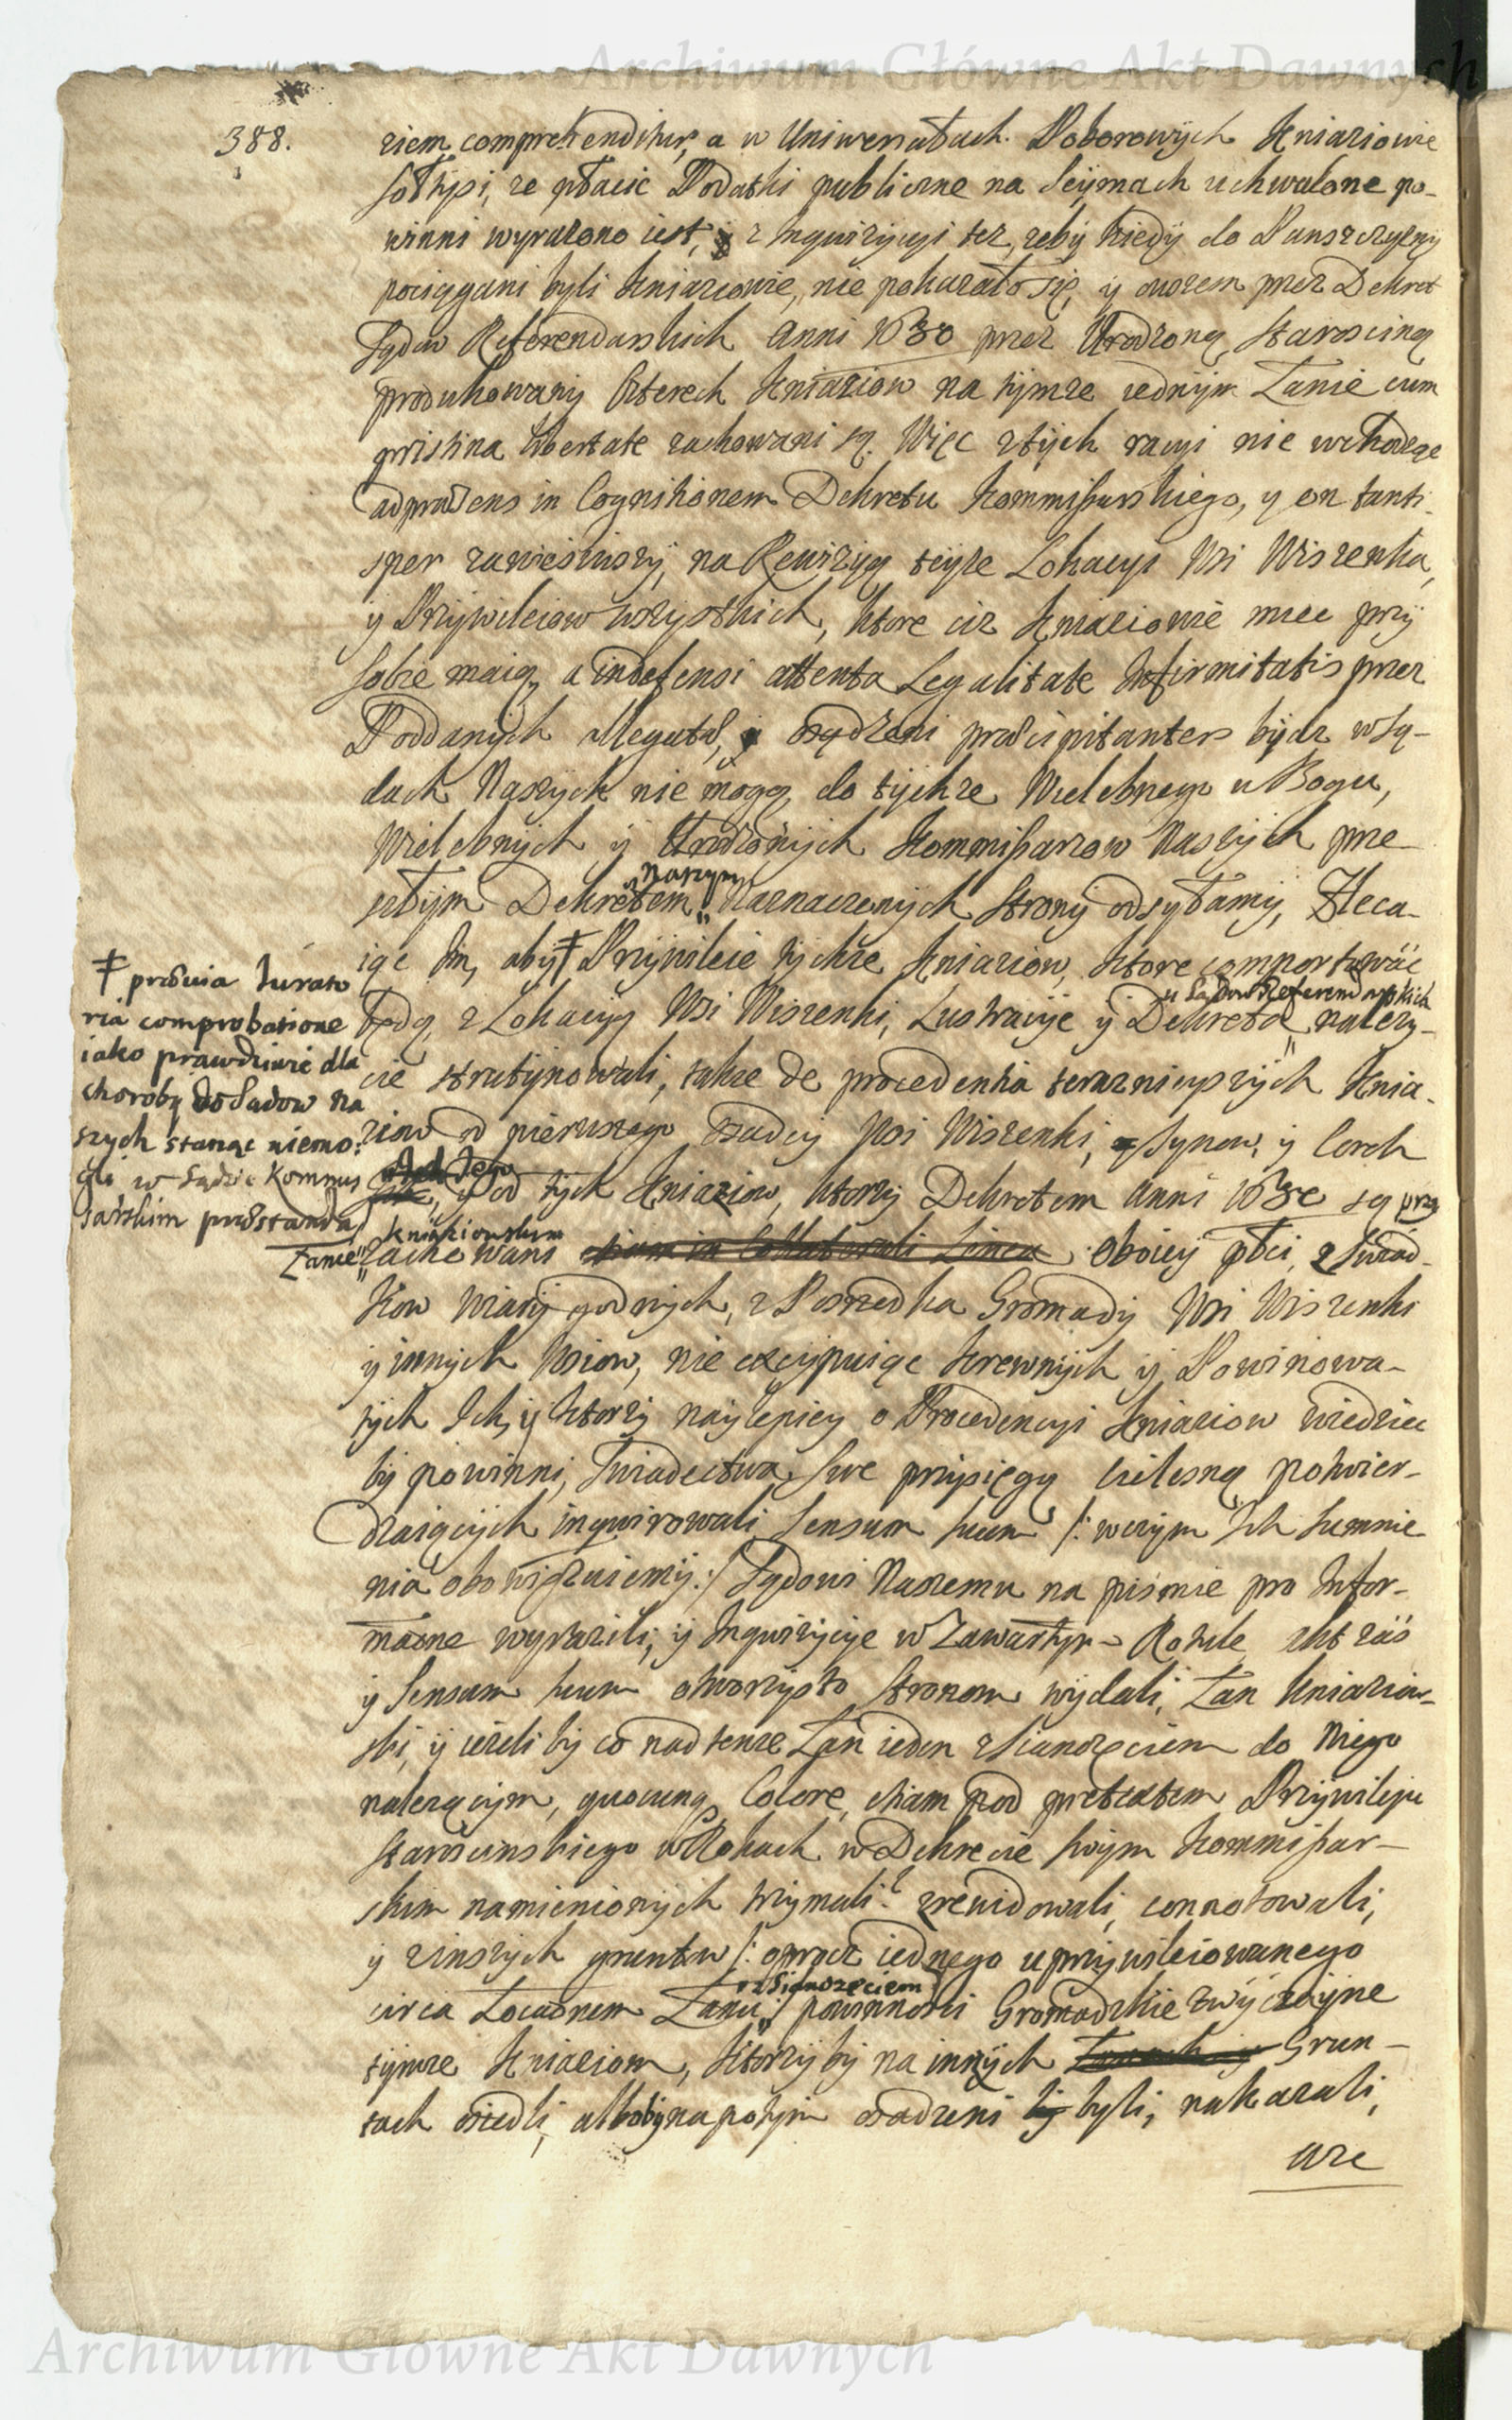 Archiwum Główne Akt Dawnych
388.
ziem comprehenditur, a w Uniwersałach Poborowych Kniaziowie
Sołtysi, ze płacic Podatki publiczne na Seymach uchwalone po-
winni wyrazono iest, y z Inquizycyi tez, zeby kiedy do Panszczyzny
pociągani byli Kniaziowie, nie pokazało się, y owszem przez Dekret
Sądow Referendarskich Anni 1630 przez Urodzoną Starościnę
produkowany Czterech Kniaziow na tymze iednym Łanie cum
pristina libertate zachowani są. Więc z tych racyi nie wchodząc
adpraesens in Cognitionem Dekretu Kommissarskiego, y on tanti-
sper zawiesiwszy, na Rewizyą teyze Lokacyi Wsi Wiszenka,
y Przywileiow wszystkich, ktore ciz Kniaziowie miec przy
sobie maią, a indefensi attenta Legalitate Infirmitatis przez
Poddanych allegatae, y osądzeni praecipitanter bydz w Są-
dach Naszych nie mogą, do tychze Wielebnego w Bogu,
Wielebnych y Urodzonych Kommissarzow Naszych prze-
szłym Dekretem naszym Naznaczonych Strony odsyłamy, Zleca-
iąc Im, aby ǂ Przywileie tychze Kniaziow, ktore comportować
będą, z Lokacyą Wsi Wiszenki, Lustracye y Dekreta u Sądow Referendarskich nalezy-
cie strutynowali, takze de procedentia teraznieyszych Knia-
ziow od pierwszego Osadcy Wsi Wiszenki, Synow, y Corek
Jego, y od tych Kniaziow, ktorzy Dekretem Anni 1630 są przy
Łanie kniaziowskim zachowani etiam in Collaterali Linea oboiey płci, z Swiad-
kow wiary godnych, z Posrzedka Gromady Wsi Wiszenki
y innych Wsiow, nie excypuiąc krewnych y Powinowa-
tych Ich, y ktorzy naylepiey o Procedencyi Kniaziow wiedziec
by powinni, Swiadectwa swe przysięgą cielesną potwier-
dzaiących inquirowali, Sensum suum /: w czym Ich sumnie-
nia obowięzuiemy :/ Sądowi Naszemu na pismie pro Infor-
matione wyrazili, y Inquizycye w Zawartym Rotule, akt zaś
y Sensum suum otworzysto Stronom wydali, Łan Kniaziow-
ski, y iezeli by co nad tenze Łan ieden z Sianozęciem do Niego
nalezącym, quocunq Colore, etiam pod pretextem Przywileju
Starościnskiego w Rokach w Dekrecie swym Kommissar-
skim namienionych trzymali? zrewidowali, connotowali,
y z inszych gruntow /: oprocz iednego uprzywileiowanego
circa Locationem Łanu z Sianozęciem :/ powinności Gromadzkie zwyczayne
tymze Kniaziom, ktorzy by na innych Łanach y Grun-
tach osiedli, alboby na potym osadzeni by byli, nakazali,
aze
ǂ praevia Jurato
ria comprobatione
iako prawdziwie dla
choroby do Sadow na
szych stanąc niemo:
gli w Sądzie Kommis
sarskim praestanda
Archiwum Główne Akt Dawnych